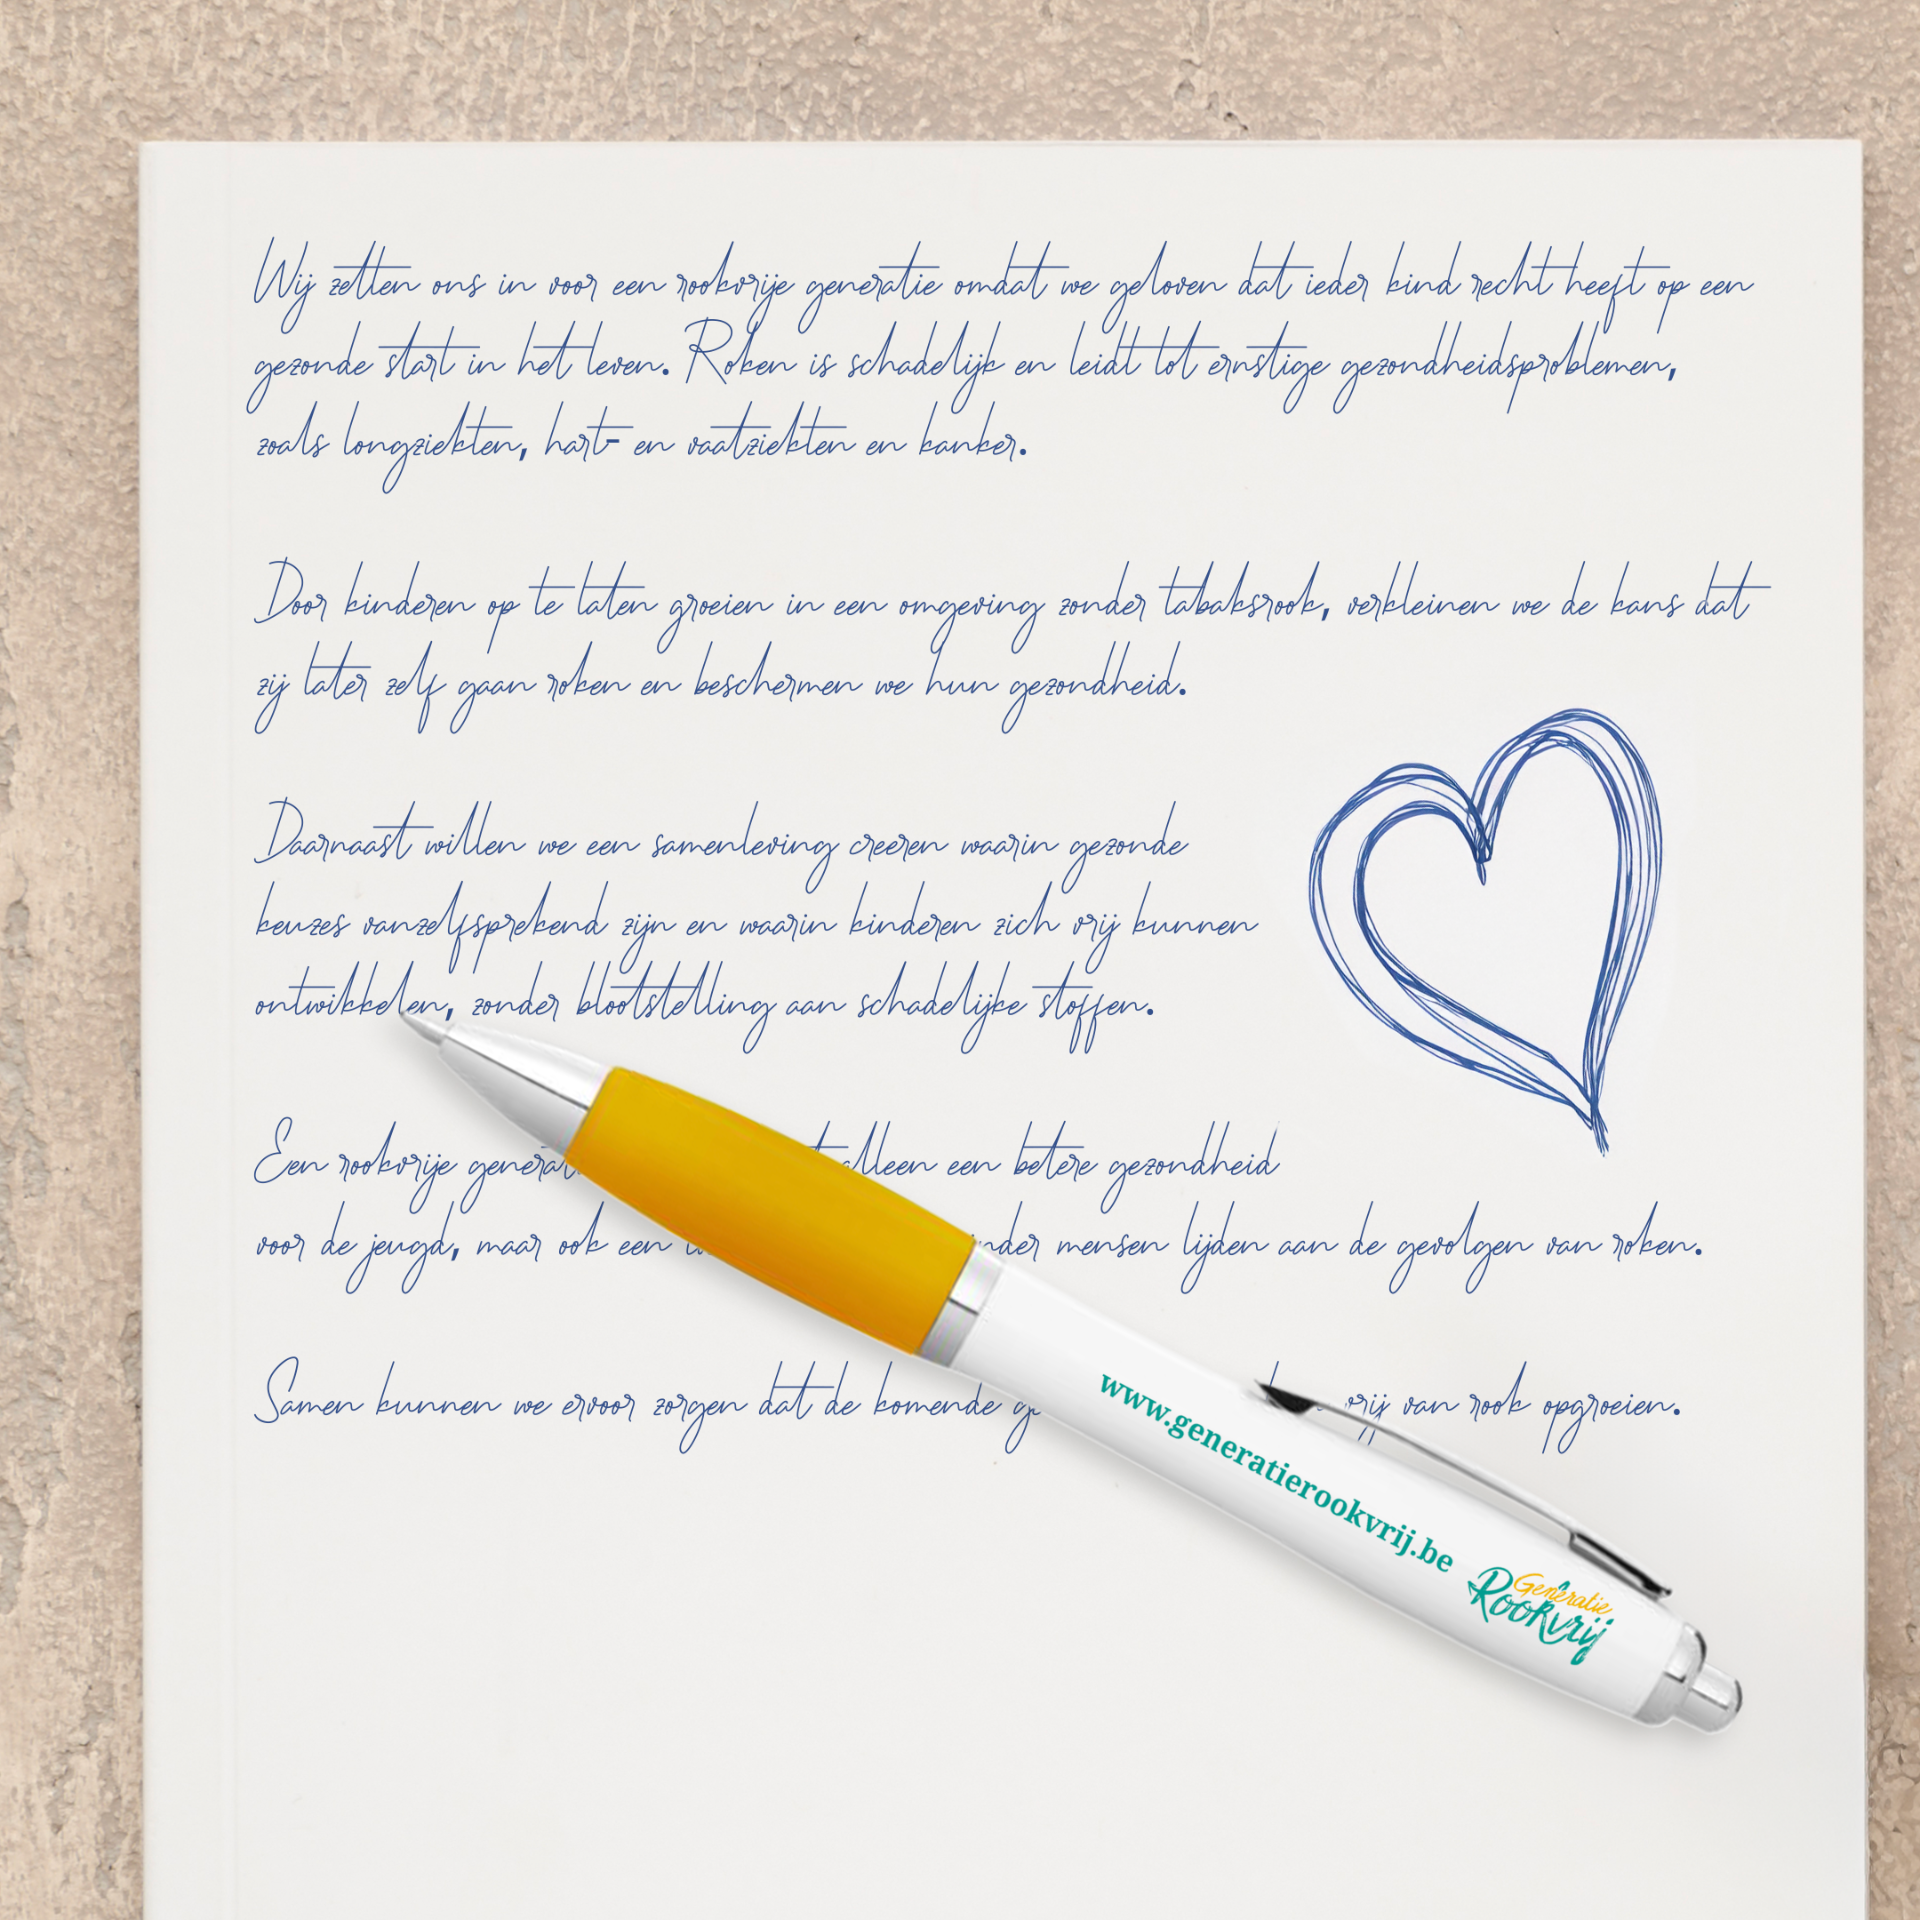 Wij zetten ons in voor een rookvrije generatie omdat we geloven dat ieder kind recht heeft op een
gezonde start in het leven. Roken is schadelijk en leidt tot ernstige gezondheidsproblemen,
zoals longziekten, hart- en vaatziekten en kanker.
Door kinderen op te laten groeien in een omgeving zonder tabaksrook, verkleinen we de kans dat
zij later zelf gaan roken en beschermen we hun gezondheid.
Daarnaast willen we een samenleving creeren waarin gezonde
keuzes vanzelfsprekend zijn en waarin kinderen zich vrij kunnen
ontwikkelen, zonder blootstelling aan schadelijke stoffen.
Een rookvrije alleen een betere gezondheid
voor de jeugd, maar ook een mensen lijden aan de gevolgen van roken.
Samen kunnen we ervoor zorgen dat de komende vrij van rook opgroeien.
www.generatierookvrij.be
Generatie
Rookvrij